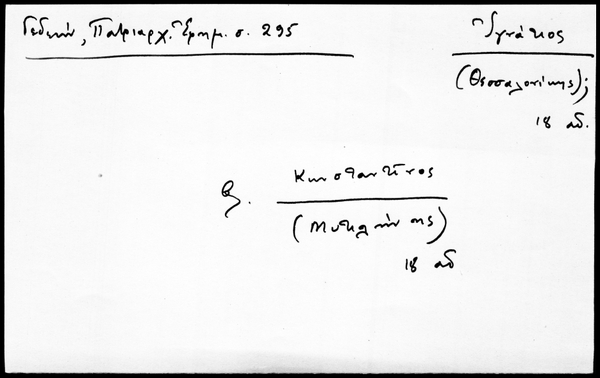 Γεδεών, Πατριαρχ. Ἐφημ. σ. 295
Ἰγνάτιος
(Θεσσαλονίκης);
18 αἰ.
βλ. Κωνσταντῖνος
(Μυτιλήνης)
18 αἰ